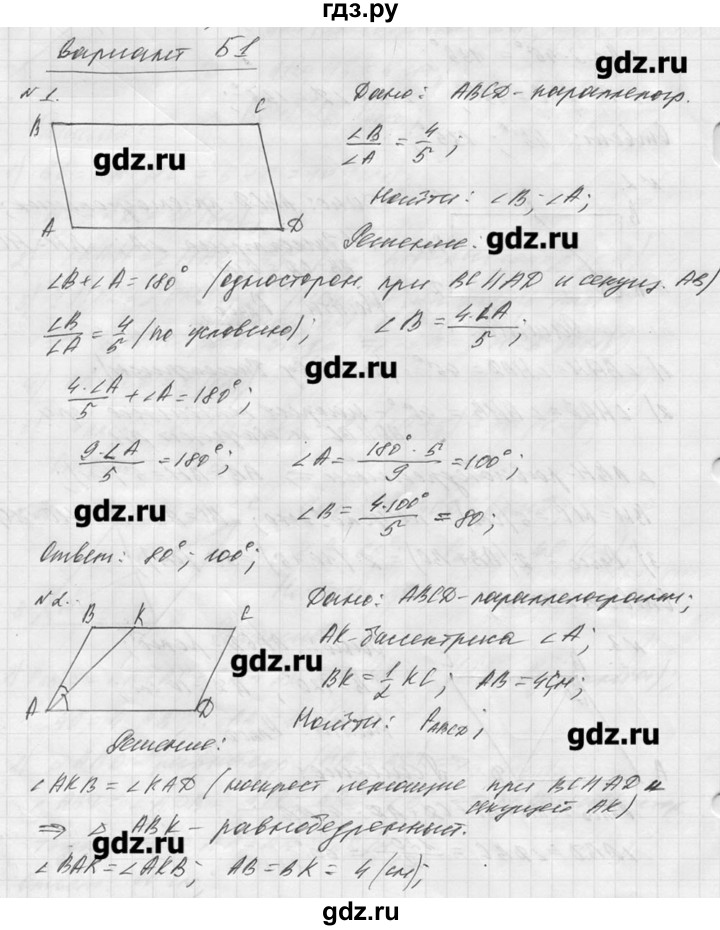 гдз.ру
Вариант Б1
gdz.ru
№1.
Дано: ABCD-параллелогр.
B C
∠B/∠A = 4/5;
gdz.ru
Найти: ∠B; ∠A;
A D
Решение: gdz.ru
∠B+∠A=180° (односторон. при BC||AD и секущ. AB)
∠B/∠A = 4/5 (по условию); ∠B = 4·∠A/5;
gdz.ru
4·∠A/5 + ∠A = 180°;
9·∠A/5 = 180°; ∠A = 180°·5/9 = 100°;
gdz.ru
∠B = 4·100°/5 = 80;
Ответ: 80°; 100°;
№2.
Дано: ABCD-параллелограмм;
B K C
AK-биссектриса ∠A;
gdz.ru
BK = 1/2 KC; AB = 4см;
A D
Найти: P
gdz.ru
Решение:
∠AKB = ∠KAD (накрест лежащие при BC||AD и
секущей AK)
⇒ △ ABK - равнобедренный.
gdz.ru
∠BAK = ∠AKB; AB = BK = 4 (см);
gdz.ru